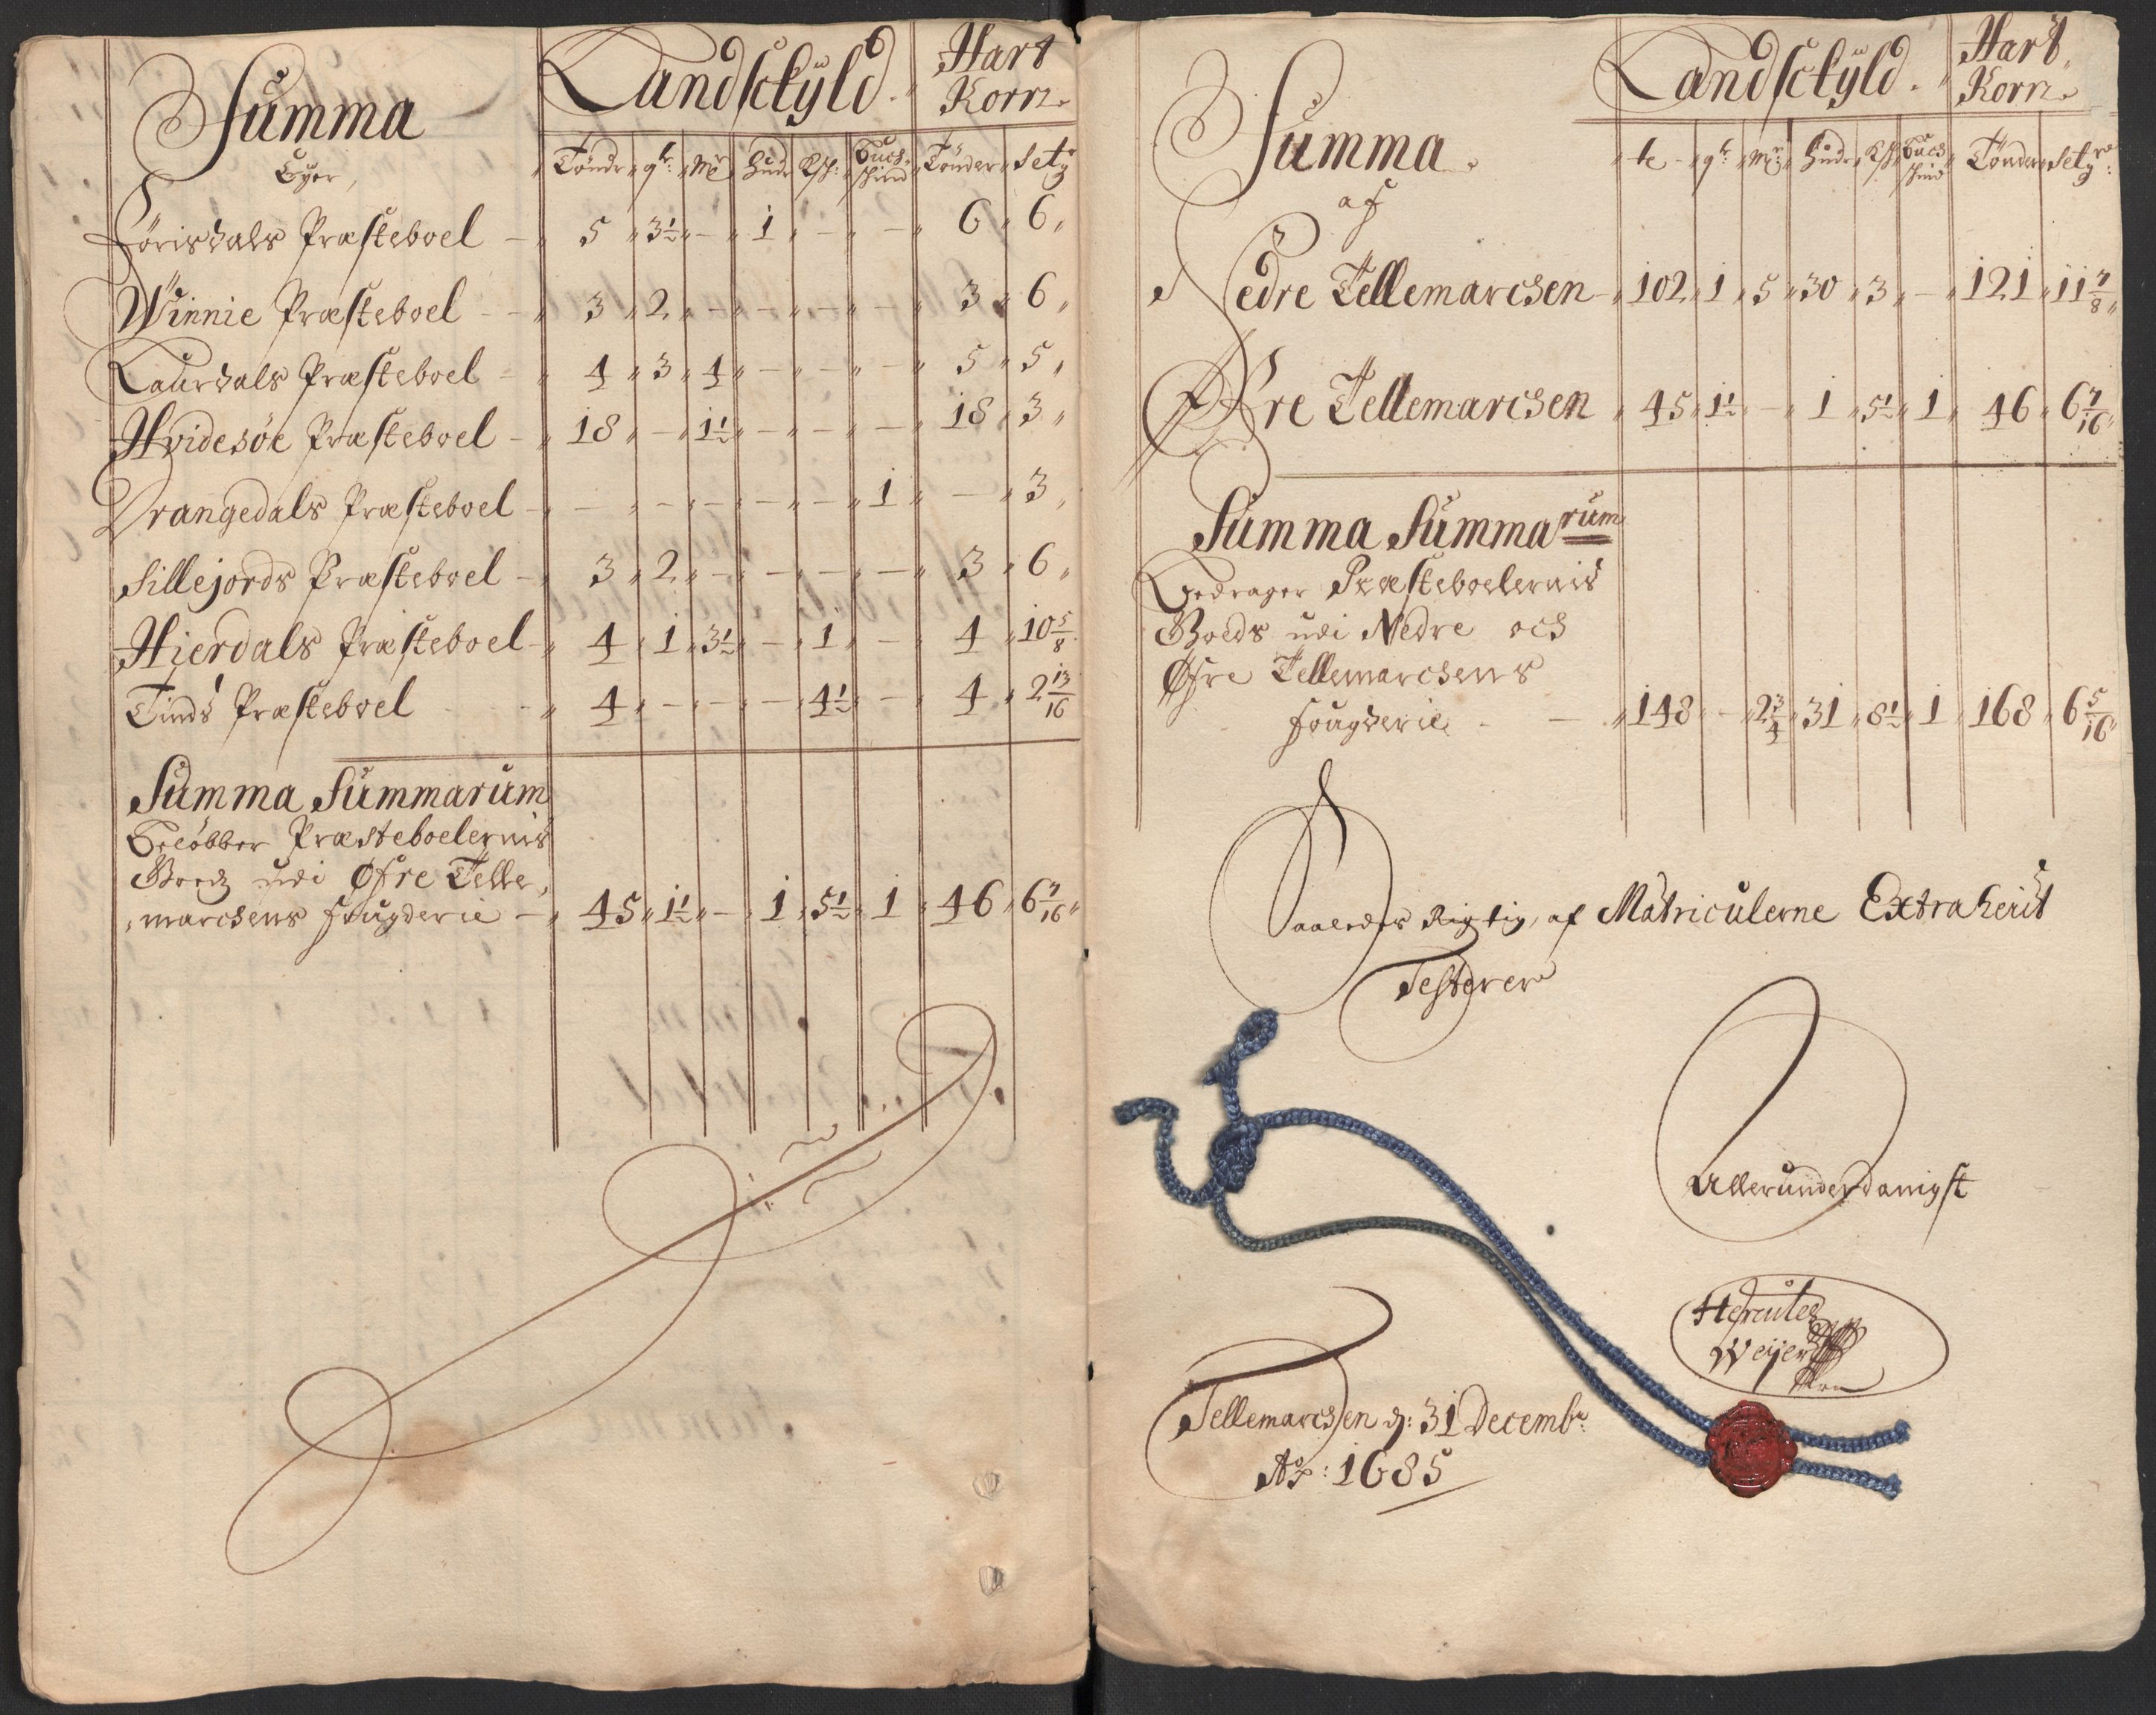 Summa
Landschÿld.
Hart
Korn.
Eyer,
Töndr qr: Mrk Hudr Ksk: Buch-schind Tönder Setgr
Förisdals Præsteboel 5 3½ - 1 - - 6 6
Winnie Præsteboel 3 2 - - - - 3 6
Laurdals Præsteboel 4 3 4 - - - 5 5
Hvidesöe Præsteboel 18 - 1½ - - - 18 3
Drangedals Præsteboel - - - - - 1 - 3
Sillejords Præsteboel 3 2 - - - - 3 6
Hierdals Præsteboel 4 1 3½ - 1 - 4 10 5/8
Tinds Præsteboel 4 - - - 4½ - 4 2 13/16
Summa Summarum
Præsteboelernis
udi Øfre Telle
marchens Fougderie 45 1½ - 1 5½ 1 46 6 7/16
Summa.
Landschÿld.
Hart
Korn.
te qr Mrk Hudr Ksk Buch schind Tönder Setgr
af
Nedre Tellemarchen 102 1 5 30 3 - 121 11 7/8
Øfre Tellemarchen 45 1½ - 1 5½ 1 46 6 7/16
Summa Summarum
Bedrager Præsteboelernis
Goeds udi Nedre och
Øfre Tellemarchens
Fougderie 148 - 2¾ 31 8½ 1 168 6 5/16
Saaledes Rigtig af Matriculerne Extraherit
Testerer
Allerunderdanigst
Hercules
Weijer
Tellemarchen d: 31 Decembr:
Ao: 1685